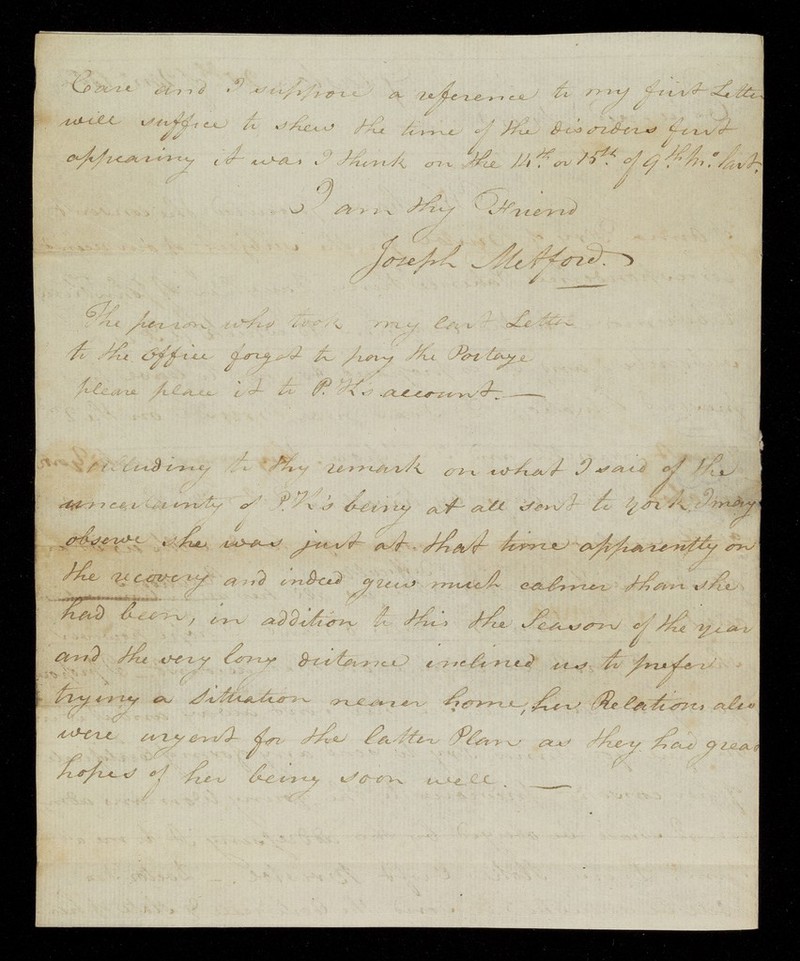 Case and I suppose a reference to my first Letter
will suffice to shew the time of the disorders first
appearing it was I think on the 14th. or 15th. of 9th. Mo. last.
I am thy Friend
Joseph Metford.
The person who took my last Letter
to the Office forgot to pay the Postage
please place it to P. K's account. —
Alluding to thy remark on what I said of the
uncertainty of P. K's being at all sent to York, I may
observe she was just at that time apparently on
the recovery and indeed grew much calmer than she
had been, in addition to this the Season of the year
and the very long distance inclined us to prefer
trying a Situation nearer home, her Relations also
were urgent for the latter Plan as they had great
hopes of her being soon well. —